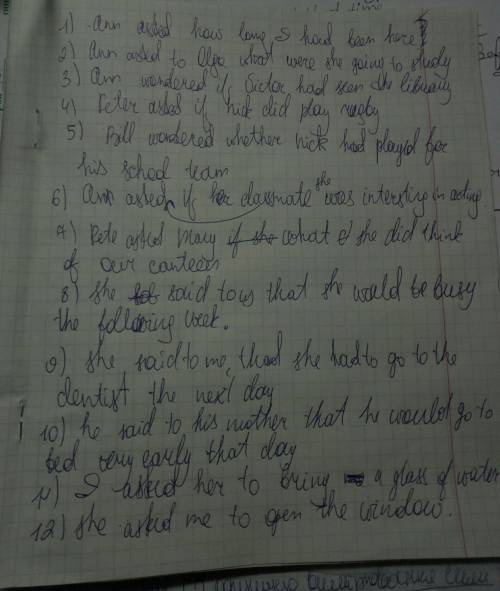 1) Ann asked how long I had been here
2) Ann asked to Olga what were she going to study
3) Ann wondered if Victor had seen the library
4) Peter asked if nick did play rugby
5) Bill wondered whether nick had played for
his school team
6) Ann asked if her classmate she was intersting in acting
7) Pete asked Mary if she what she did think
of our canteen
8) she said to us that she would be busy
the following week.
9) she said to me, that she had to go to the
dentist the next day
10) he said to his mother that he would go to
bed very early that day
11) I asked her to bring a glass of water
12) she asked me to open the window.